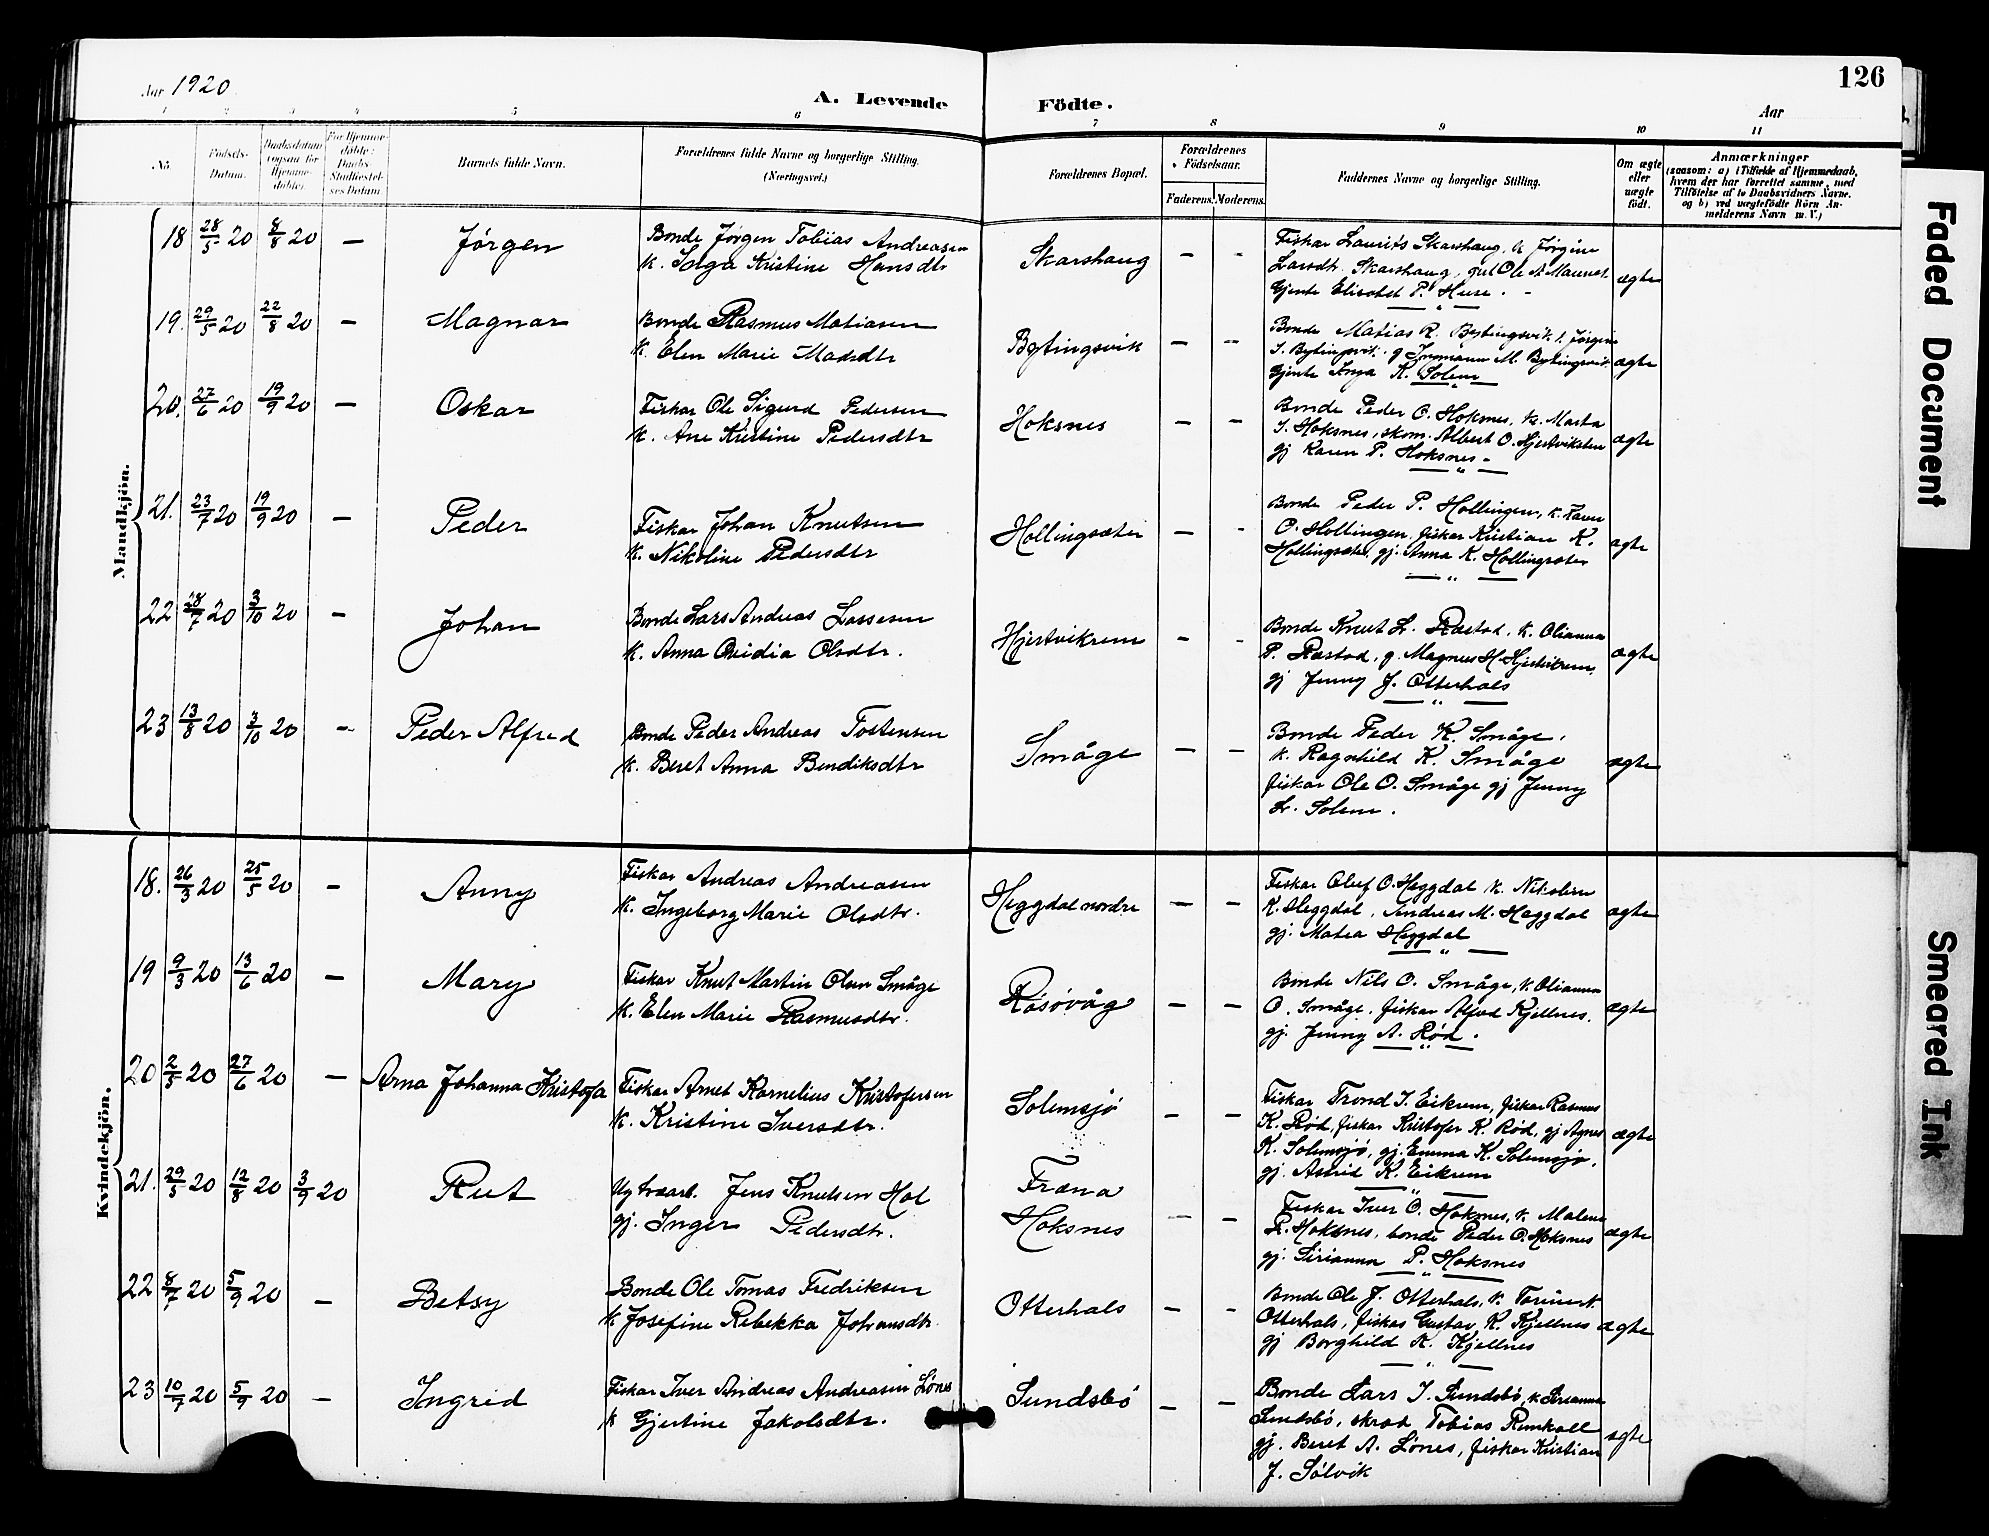 Aar 1920
A. Levende Födte.
126
Aar
1 2 3 4 5 6 7 8 9 10 11
No. Födsels-Datum. Daabsdatum (ogsaa for Hjemmedöbte). For Hjemmedöbte: Daabs Stadfæstelses Datum Barnets fulde Navn. Forældrenes fulde Navne og borgerlige Stilling. (Næringsvei.) Forældrenes Bopæl. Forældrenes Födselsaar. Faderens. Moderens. Faddernes Navne og borgerlige Stilling. Om ægte eller uægte födt. Anmærkninger (saasom: a) i Tilfælde af Hjemmedaab, hvem der har forrettet samme, med Tilföielse af to Daabsvidners Navne, og b) ved uægtefödte Börn Anmelderens Navn m. V.)
Mandkjön.
18 28/5 20 8/8 20 — Jørgen
Bonde Jørgen Tobias Andreasen
k. Inga Kristine Hansdtr
Skarshaug - -
Fiskar Laurits Skarshaug, k Jørgine
Larsdtr. Skarshaug, Ole A. Mauset
Gjente Elisabet P. Huse.
ægte
19. 29/5 20 22/8 20 — Magnar
Bonde Rasmus Matiasen
k. Elen Marie Madsdtr
Bytingsvik - -
Bonde Matias R. Bytingsvik, Jørgine
J. Bytingsvik, g Ingmann M. Bytingsvik
Gjente Inga K. Solem
ægte
20. 27/6 20 19/9 20 — Oskar
Fiskar Ole Sigurd Pedersen
k. Ane Kristine Pedersdtr
Hoksnes - -
Bonde Peder O. Hoksnes, k. Marta
I. Hoksnes, skom. Albert O. Hjertviksten
gj Karen P. Hoksnes -
ægte
21. 23/7 20 19/9 20 — Peder
Fiskar Johan Knutsen
k. Nikoline Pedersdtr
Hollingsæter - -
Bonde Peder P. Hollingen, k. Karen
O. Hollingen, fiskar Kristian K.
Hollingsæter, gj. Anna K. Hollingsæter
ægte
22 28/7 20 3/10 20 — Johan
Bonde Lars Andreas Lassesen
k. Anna Ovidia Olsdtr.
Hjertvikrem - -
Bonde Knut L. Rastad, k. Olianna
P. Rastad, g. Magnus H. Hjertvikrem,
gj Jenny J. Otterhals
ægte
23 13/8 20 3/10 20 — Peder Alfred
Bonde Peder Andreas Tostensen
k. Beret Anna Bendiksdtr
Småge - -
Bonde Peder K. Småge,
k. Ragnhild K. Småge
fiskar Ole O. Småge gj Jenny
L. Solem.
ægte
Kvindekjön.
18. 26/3 20 25/5 20 — Anny
Fiskar Andreas Andreasen
k. Ingeborg Marie Olsdtr.
Heggdal nordre - -
Fiskar Oluf O. Heggdal k. Nikoline
K. Heggdal, Andreas M. Heggdal
gj. Matea Heggdal
ægte
19 9/3 20 13/6 20 — Mary
Fiskar Knut Martin Olsen Småge
k. Elen Marie Rasmusdtr.
Råsøvåg - -
Bonde Nils O. Småge, k. Olianna
O. Småge, fiskar Alfred Kjellnes,
gj. Jenny A. Rød.
ægte
20 2/5 20 27/6 20 — Arna Johanna Kristofa
Fiskar Arnet Kornelius Kristofersen
k. Kristine Iversdtr.
Solemsjø - -
Fiskar Trond I. Eikrem, fiskar Rasmus
K. Rød, fiskar Kristofer K. Rød, gj Agnes
K. Solemsjø, gj. Emma K. Solemsjø,
gj. Astrid K. Eikrem
ægte
21. 29/5 20 12/8 20 3/9 20 Rut
Jens Knutsen Hol
gj. Inger Pedersdtr.
Fræna
Hoksnes - -
Fiskar Iver O. Hoksnes, k. Malene
L. Hoksnes, bonde Peder O. Hoksnes
gj. Sirianna P. Hoksnes
ægte
22 8/7 20 5/9 20 — Betsy
Bonde Ole Tomas Fredriksen
k Josefine Rebekka Johansdtr.
Otterhals - -
Bonde Ole J. Otterhals, k.
Otterhals, fiskar Gustav K. Kjellnes
gj Borghild K. Kjellnes
ægte
23 10/7 20 5/9 20 — Ingrid
Fiskar Iver Andreas Andreasen Lønes
k Gjertine Jakobsdtr.
Sundsbø - -
Bonde Lars I. Sundsbø, k. Sirianna
Sundsbø, Tobias
gj. Beret A. Lønes, fiskar Kristian
J. Sølvik
ægte
Faded Document
Smeared Ink